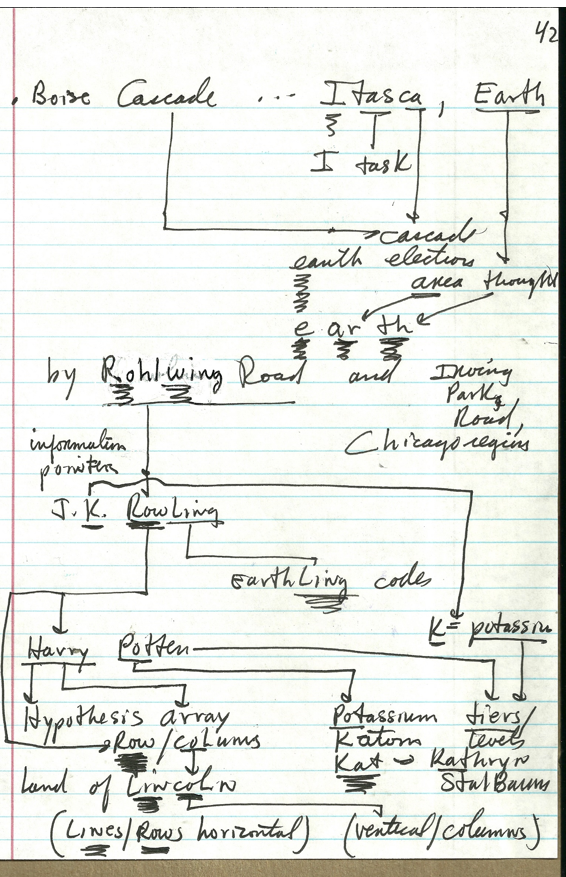 42
. Boise Cascade ... Itasca, Earth
I task
cascade
earth electron
area thought
e ar th
by Rohlwing Road and Irving
Park
Road,
Chicago region
information
pointers
J.K. Rowling
EarthLing codes
K = potassiu
Harry Potter
Hypothesis array Potassium tiers/
Row/colums Katom levels
Kat Kathryn
Land of Lincoln StalBaums
(Lines/Rows horizontal) (ventical/columns)